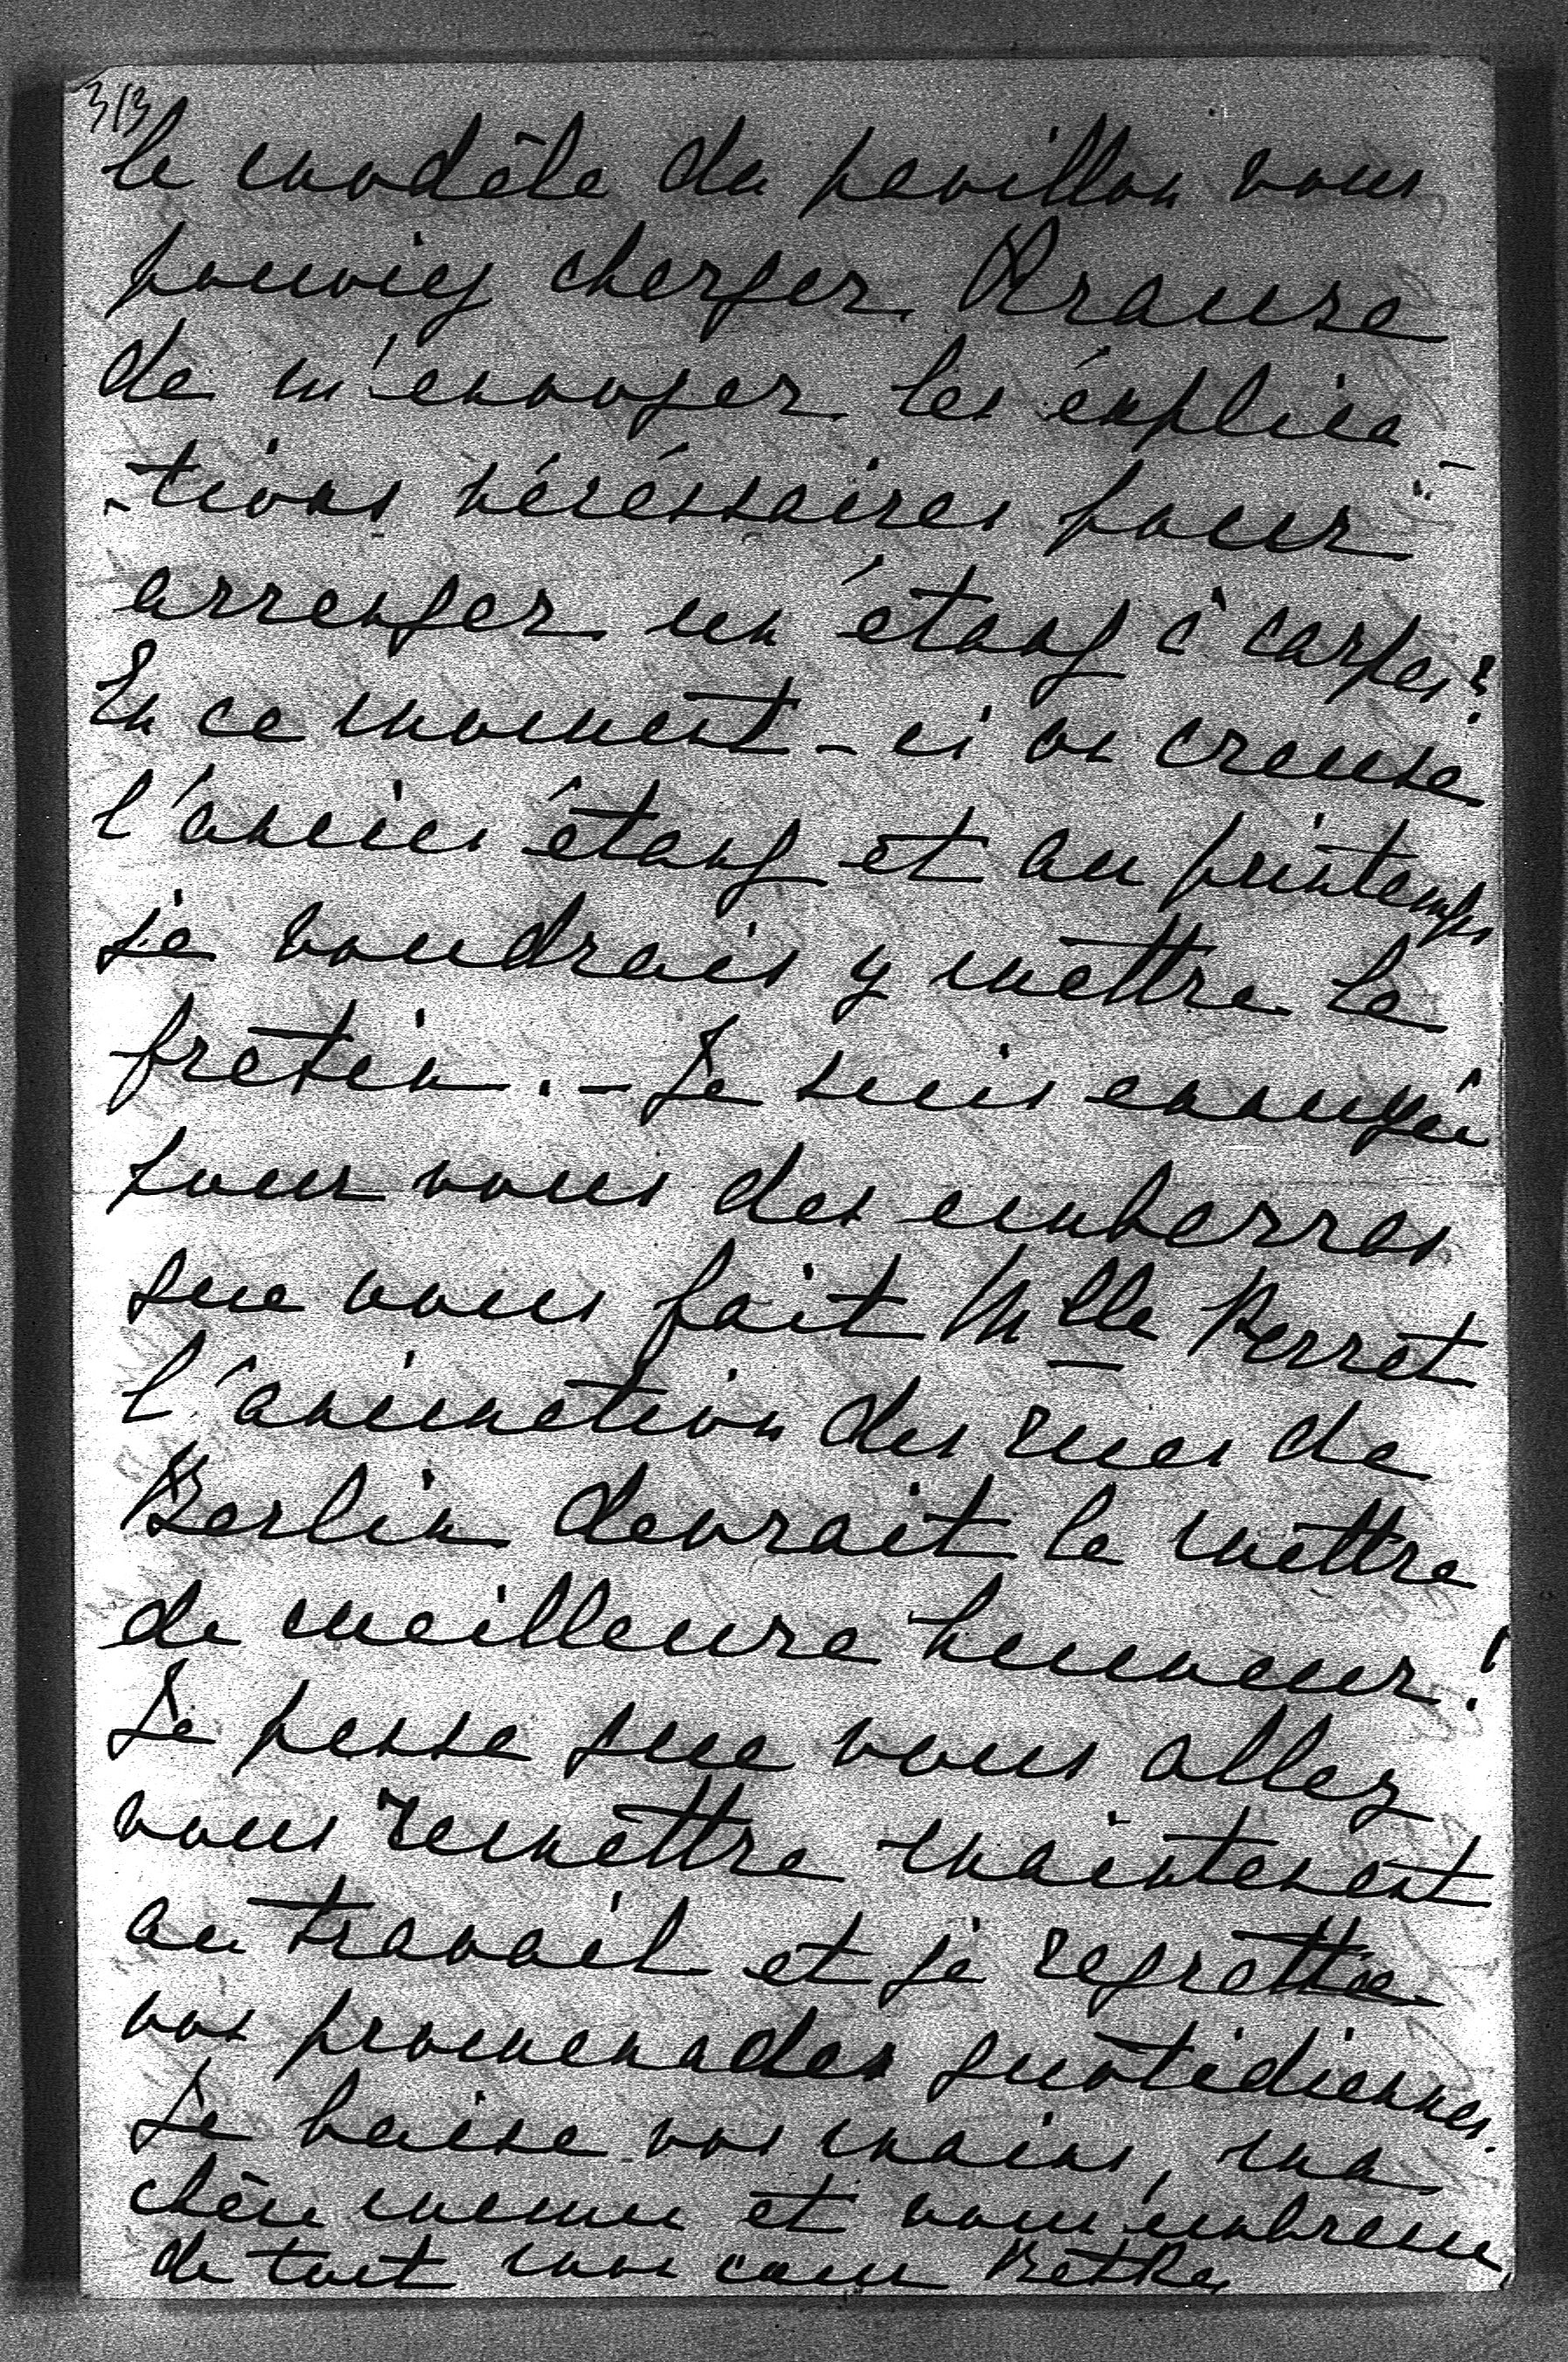 313
le modèle du pavillon vous
pouviez charger Krause
de m'envoyer les éxplica-
-tions nécéssaires pour
arranger un étang à carpes?
En ce moment-ci on creuse
l'ancien étang et au printemps
je voudrais y mettre le
fretin. - Je suis ennuyée
pour vous des embarras
que vous fait Mlle Perret
l'animation des rues de
Berlin devrait la mettre
de meilleure humeur!
Je pense que vous allez
vous remettre maintenant
au travail et je regrette
nos promenades quotidiennes.
Je baise vos mains, ma
chère meme et vous embrasse
de tout mon cœur Betka